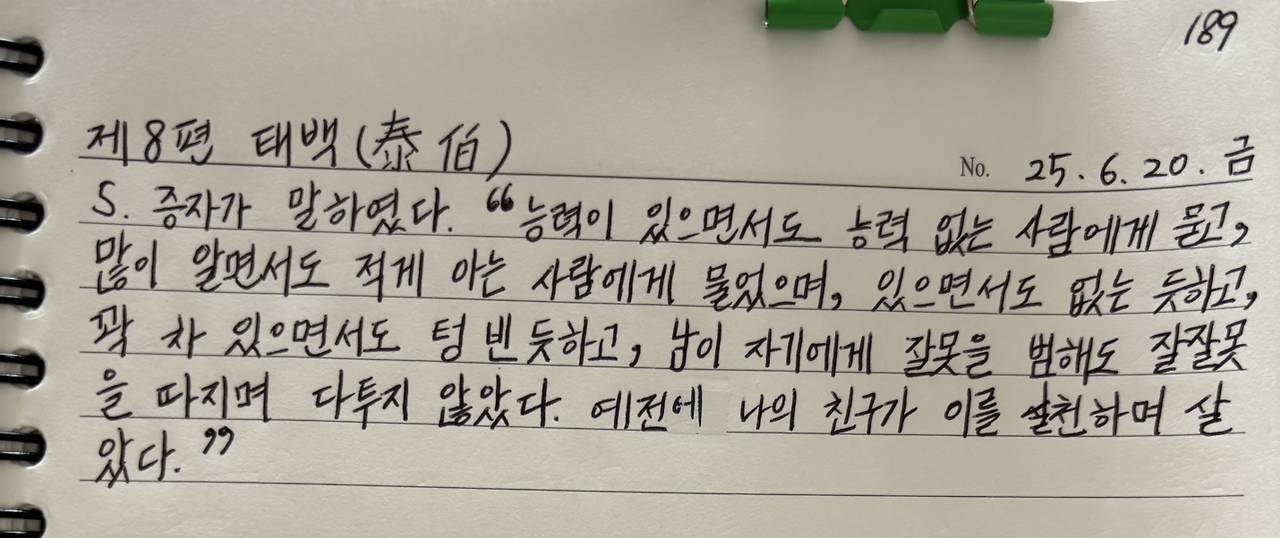 189
제8편 태백(泰伯)
No. 25.6.20.금
5. 증자가 말하였다. “능력이 있으면서도 능력 없는 사람에게 묻고,
많이 알면서도 적게 아는 사람에게 물었으며, 있으면서도 없는 듯하고,
꽉 차 있으면서도 텅 빈듯하고, 남이 자기에게 잘못을 범해도 잘잘못
을 따지며 다투지 않았다. 예전에 나의 친구가 이를 실천하며 살
았다.”